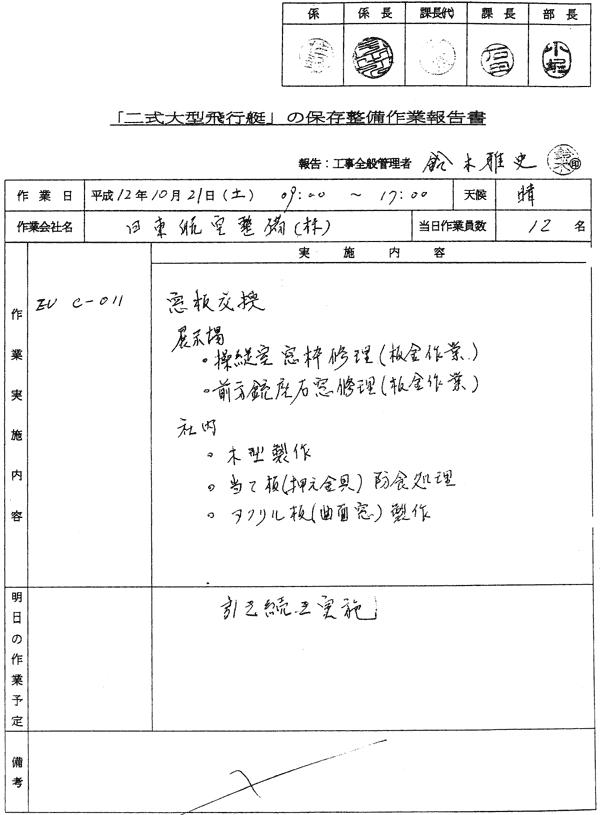 係 係長 課長(代) 課長 部長
小堀
「二式大型飛行艇」の保存整備作業報告書
報告：工事全般管理者 鈴木雅史 ㊞
作業日 平成12年10月21日(土) 09:00 ～ 17:00 天候 晴
作業会社名 日東航空整備(株) 当日作業員数 12名
実施内容
作業実施内容
C-011 窓板交換
展示場
・操縦室窓枠修理(板金作業)
・前方銃座右窓修理(板金作業)
社内
。木型製作
。当て板(押え金具)防食処理
。アクリル板(曲面窓)製作
明日の作業予定
引き続き実施
備考